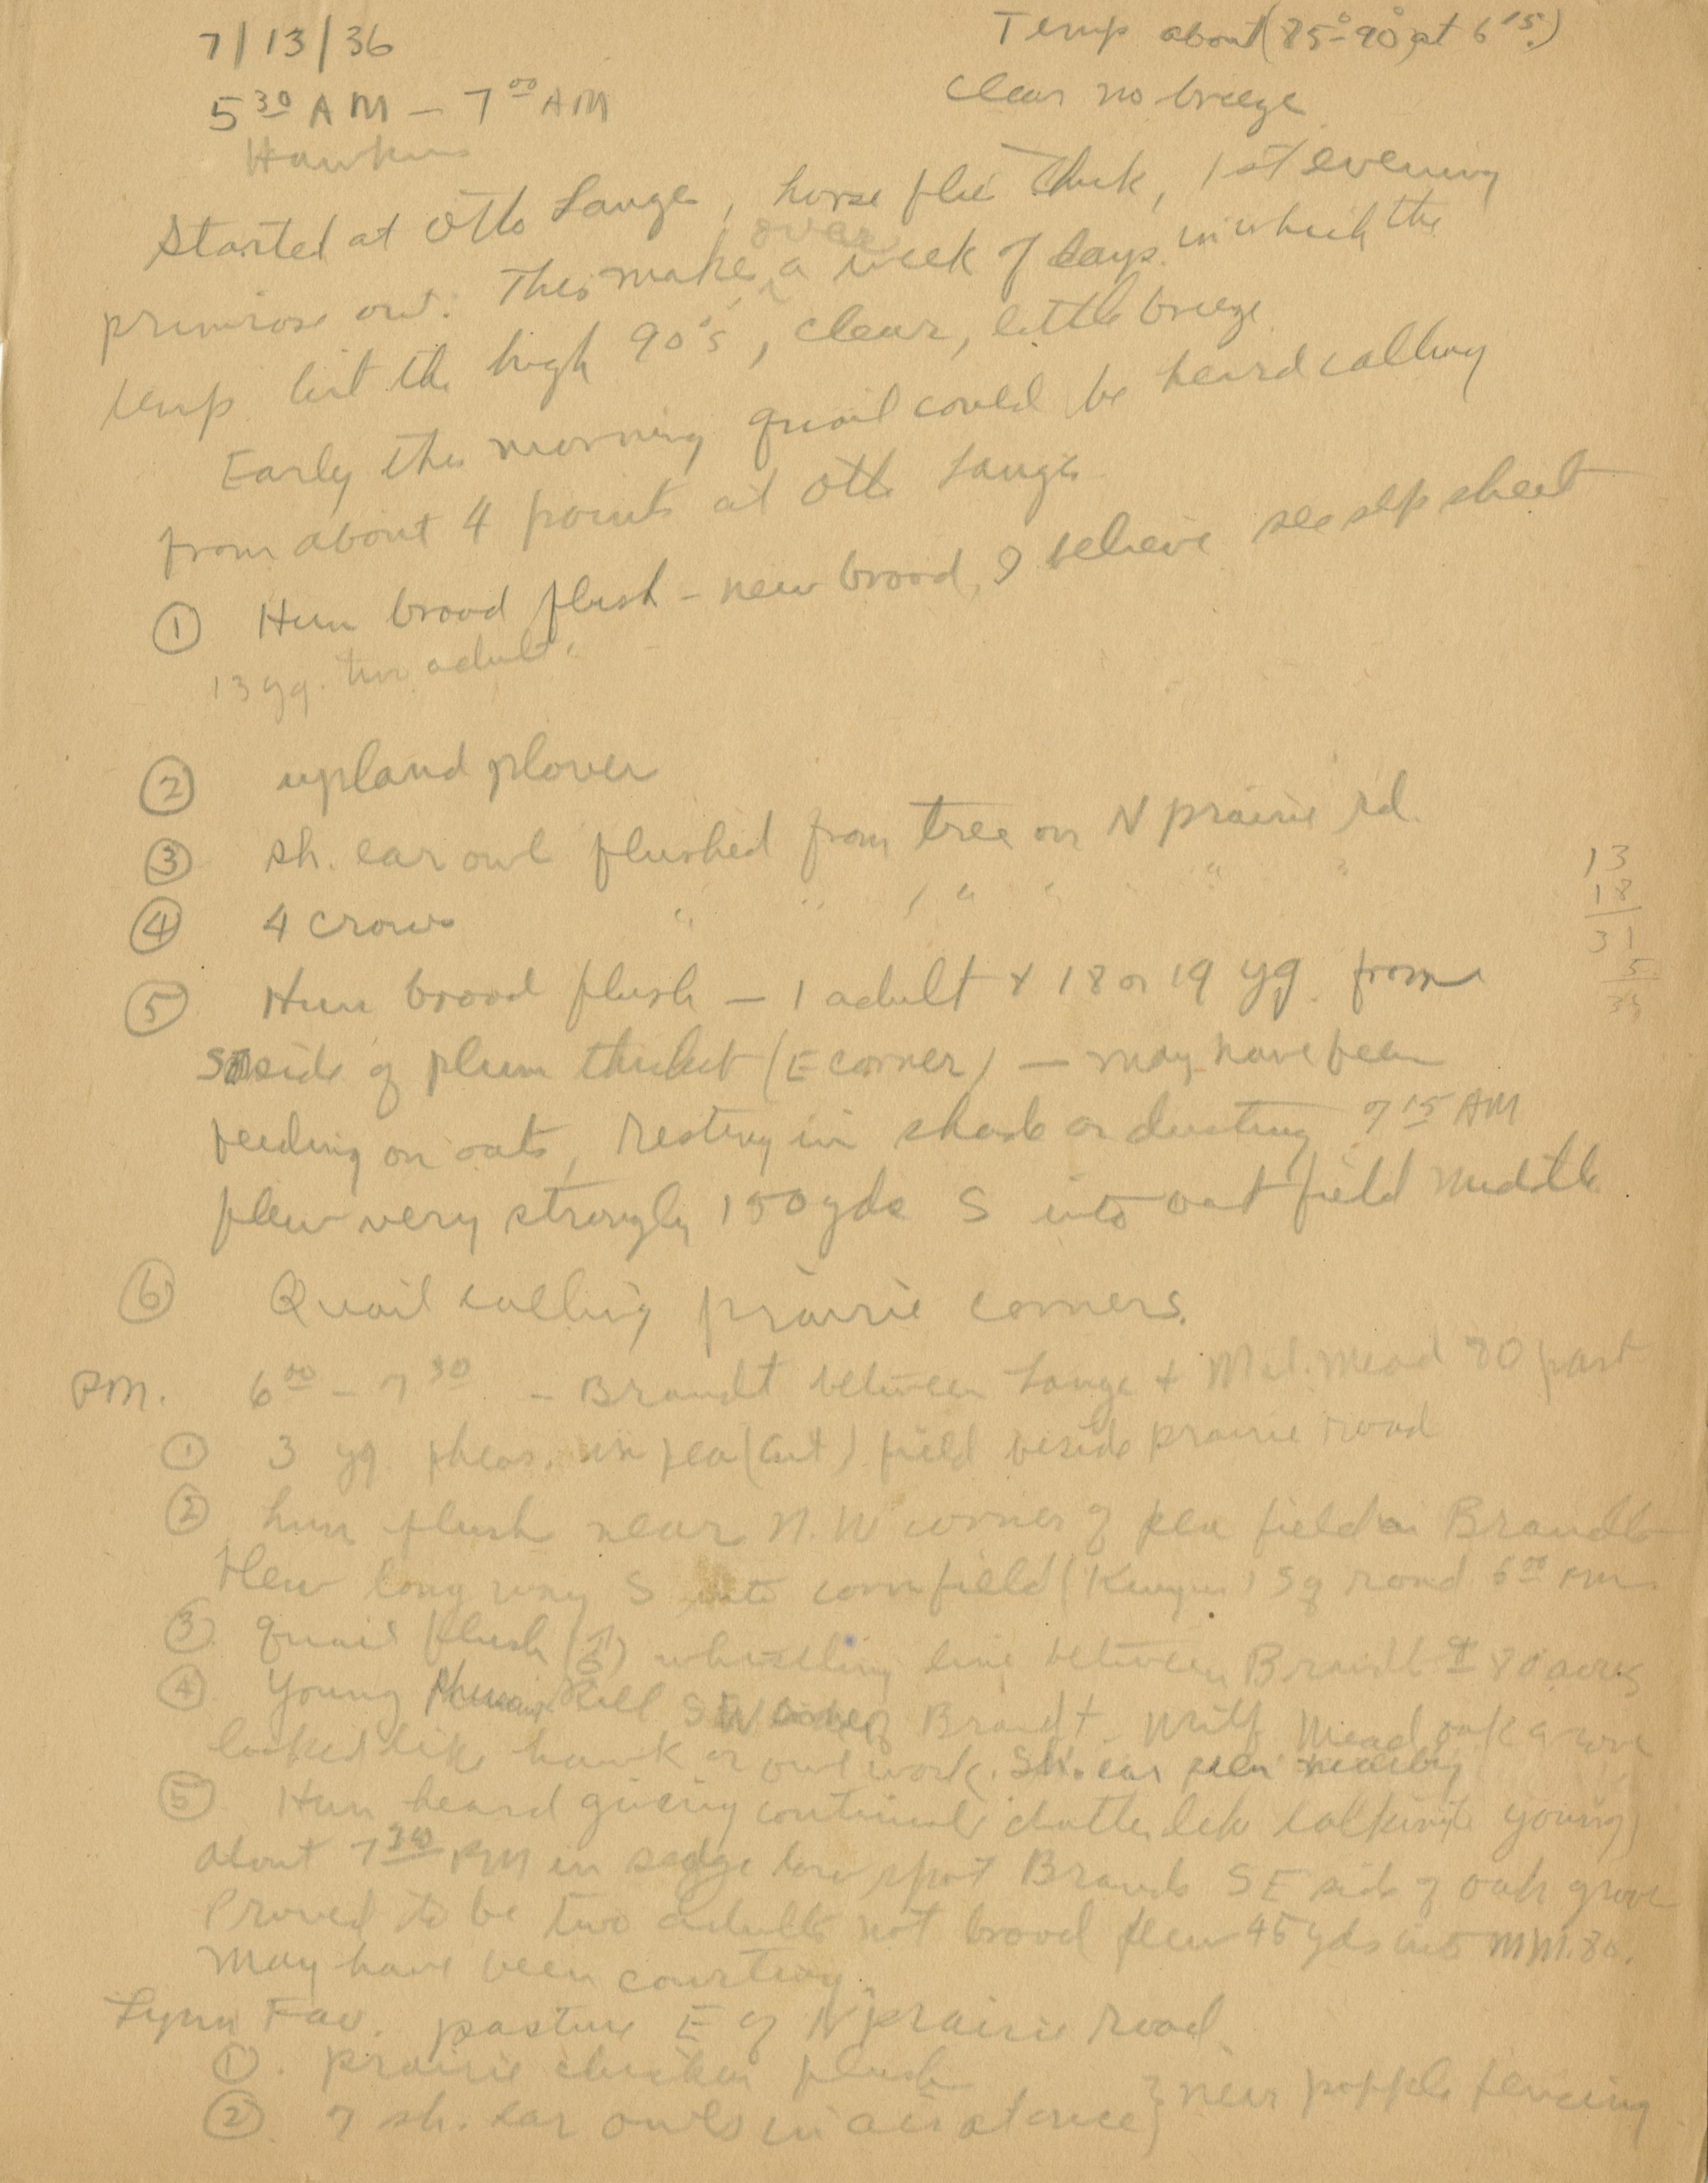 7/13/36
Temp about (85°-90° at 6 15.)
5 30 AM - 7 00 AM
Clear no breeze
Hawkins
Started at Otto Lange, horse flies thick, 1st evening
primrose out. This makes over a week of days in which the
temp hit the high 90's, clear, little breeze
Early this morning quail could be heard calling
from about 4 points at Otto Lange
① Hun brood flush - new brood, I believe see slip sheet
13 yg. two adult.
② upland plover
③ sh. ear owl flushed from tree on N prairie rd.
④ 4 crows " " " " " " "
13
18
31
5
⑤ Hun brood flush - 1 adult & 18 or 19 yg. from
side of plum thicket (E corner) - may have been
feeding on oats, resting in shade or dusting 7 15 AM
flew very strongly 150 yds S into oat field middle
⑥ Quail calling prairie corners.
PM. 6 00 - 7 30 - Brandt between Lange & Mead 80 past
① 3 yg. pheas. in pea (cut) field beside prairie road
② hun flush near N.W corner of pea field on Brandt
flew long way S into cornfield road PM
③ quail flush (♂) whistling line between Brandt 80 acres
④ Young kill Brandt Mead oak grove
looked like hawk or owl work. Sh. ear seen nearby
⑤ Hun heard giving continual chatter like talking to young
about 7 30 PM in sedge low spot Brandt SE side of oak grove
Proved to be two adults not brood flew 45 yds into M.M. 80.
May have been courting.
Lynn Fav. pasture E of N prairie road
①. prairie chicken flush
② 7 sh. ear owls in air at once } near popple fencing